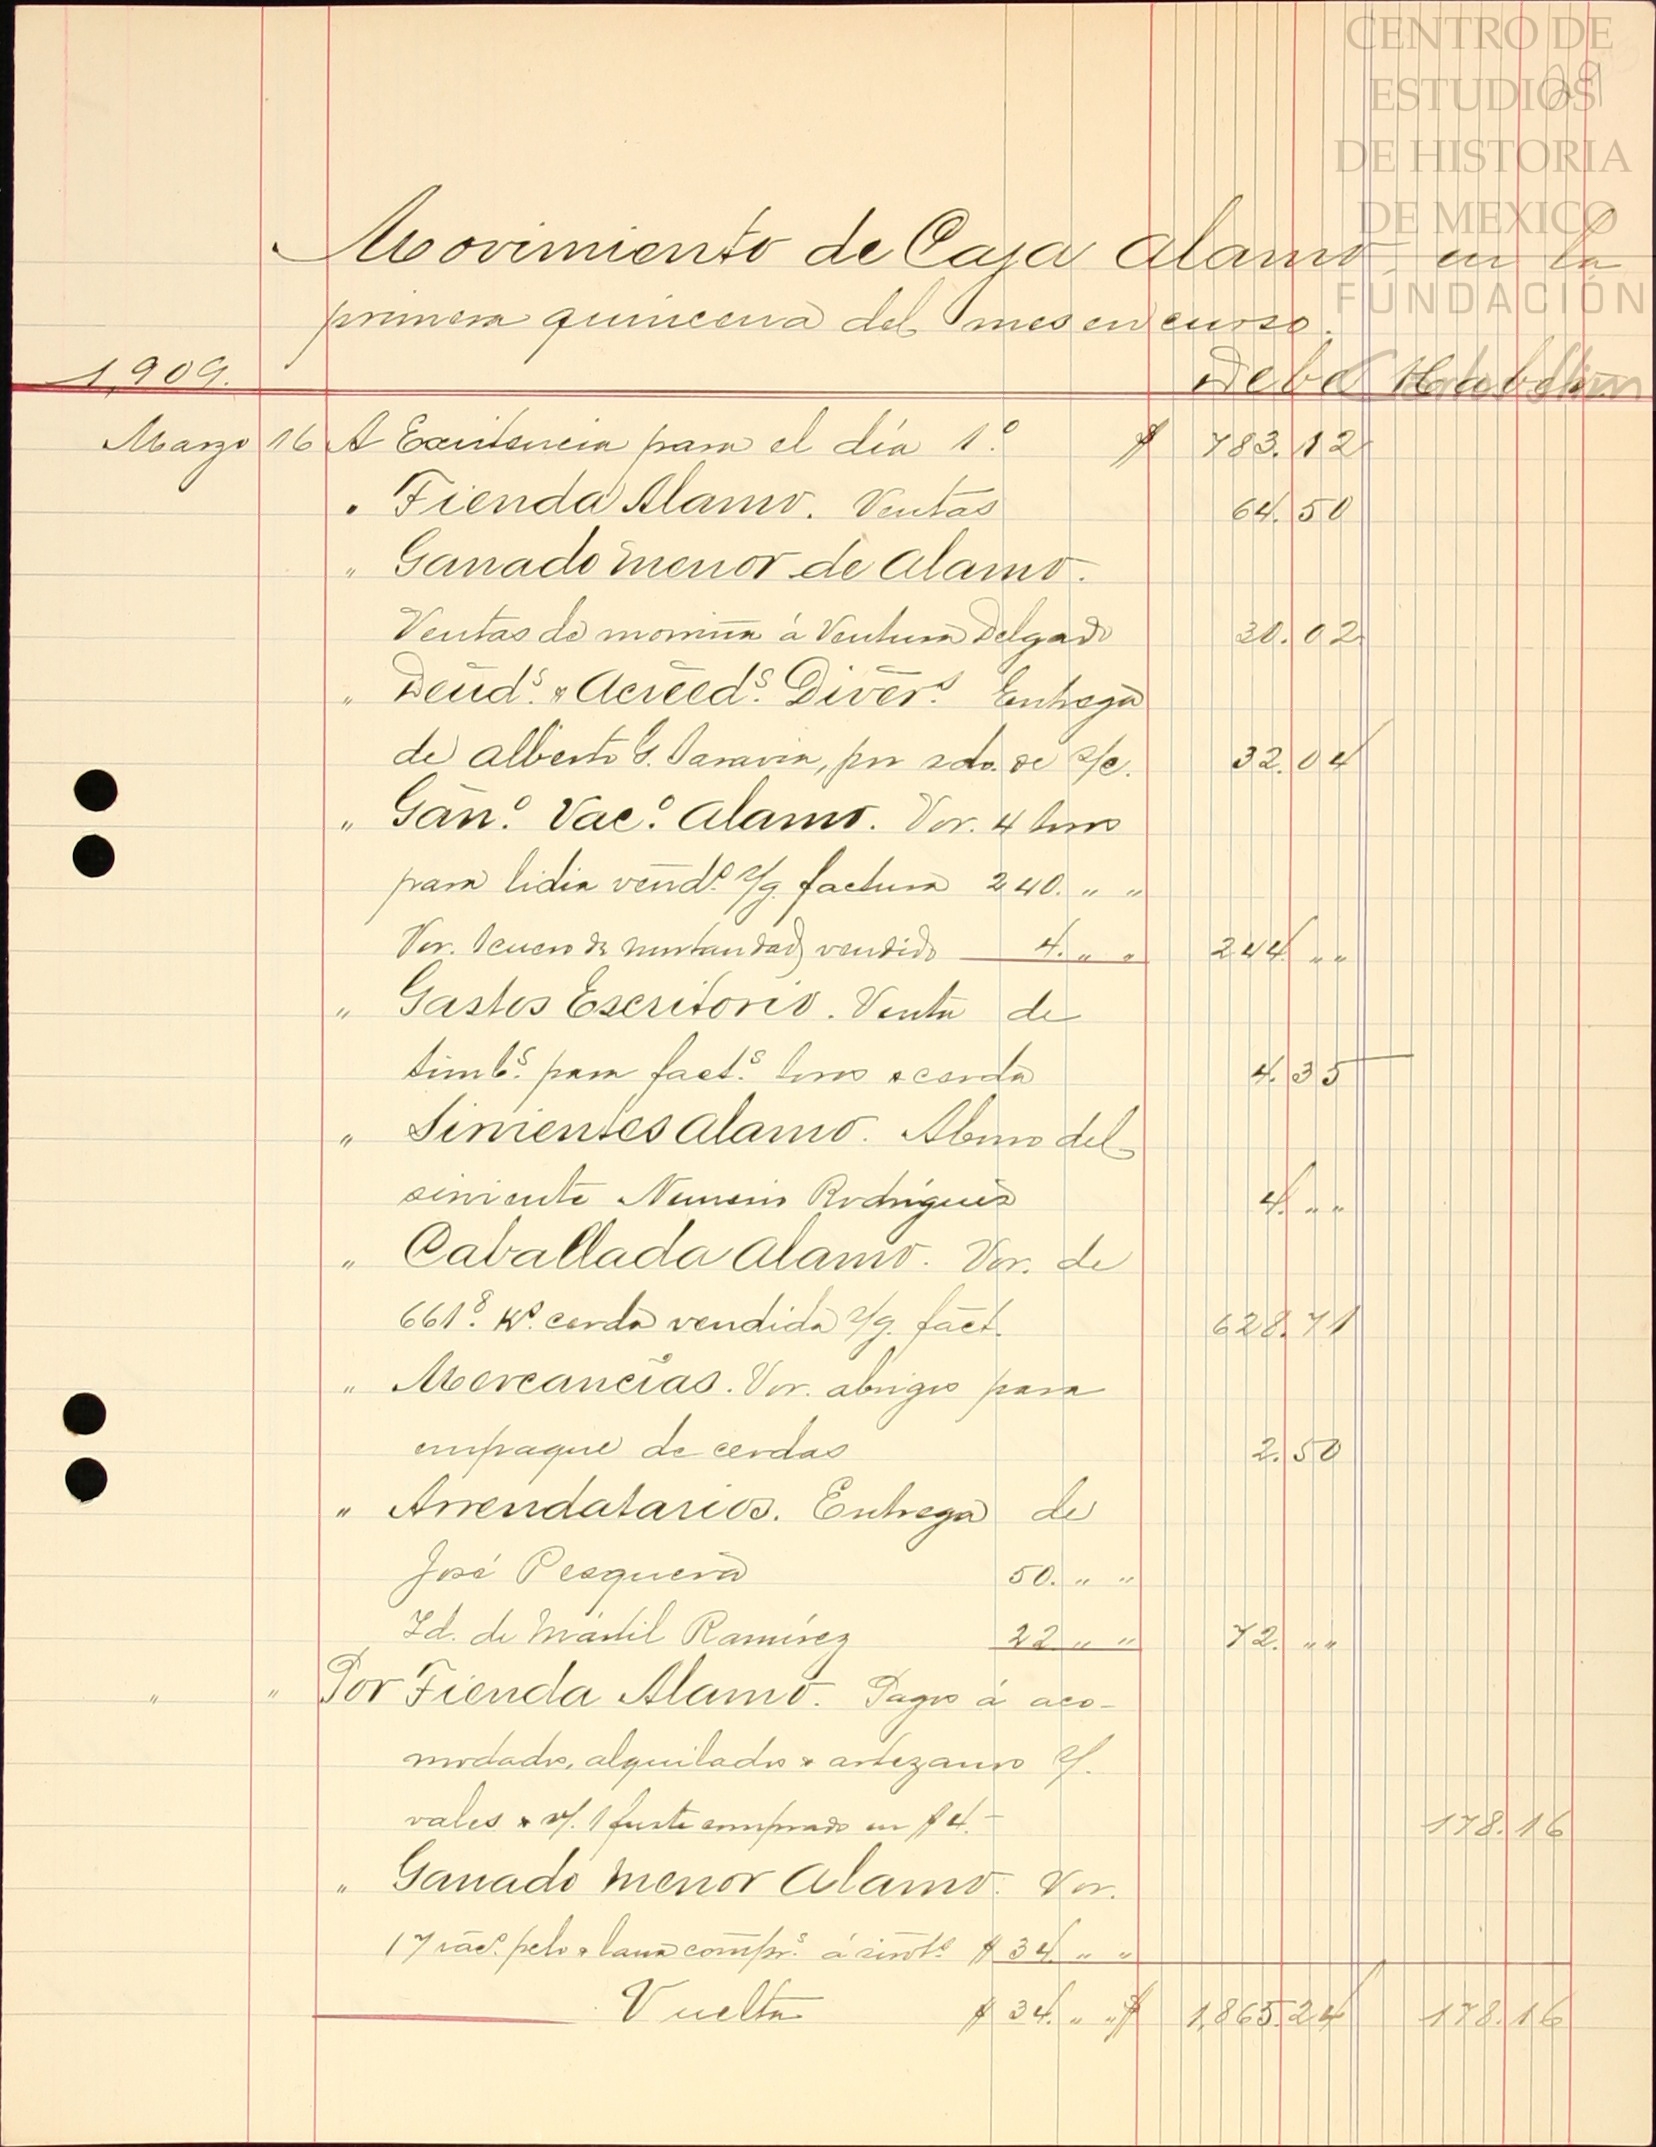 CENTRO DE
ESTUDIOS
DE HISTORIA
DE MEXICO
FUNDACIÓN
Movimiento de Caja Alamo, en la
primera quincena del mes en curso.
1,909. Debe Haber
Marzo 16 A Existencia para el día 1.º $ 783.12
" Tienda Alamo. Ventas 64.50
" Ganado menor de Alamo.
Ventas de morriña á Ventura Delgado 30.02
" Deud.s & Acreed.s Divers.s Entrega
de Alberto G. por sdo. de s/c. 32.04
" Gan.º Vac.º Alamo. Vor. 4 toros
para lidia vend.s s/g. factura 240. " "
Vor. 1 cuero de mortandad vendido 4. " " 244 " "
" Gastos Escritorio. Venta de
timb.s para fact.s toros & cerda 4.35
" Sirvientes Alamo. Abono del
sirviente Nemesio Rodríguez 4. " "
" Caballada Alamo. Vor. de
661.8 K.s cerda vendida s/g. fact. 628.71
" Mercancías. Vor. abrigos para
empaque de cerdas 2.50
" Arrendatarios. Entrega de
José Pesqueira 50. " "
Id. de Ramírez 22 " " 72. " "
" " Por Tienda Alamo. Pagos á aco-
modados, alquilados & artezanos s/.
vales & v/. 1 fuste comprado en $4.- 178.16
" Ganado menor Alamo. Vor.
17 pelo & lana compr.s á sirvts $ 34 " "
Vuelta $ 34. " " $ 1,865.24 178.16